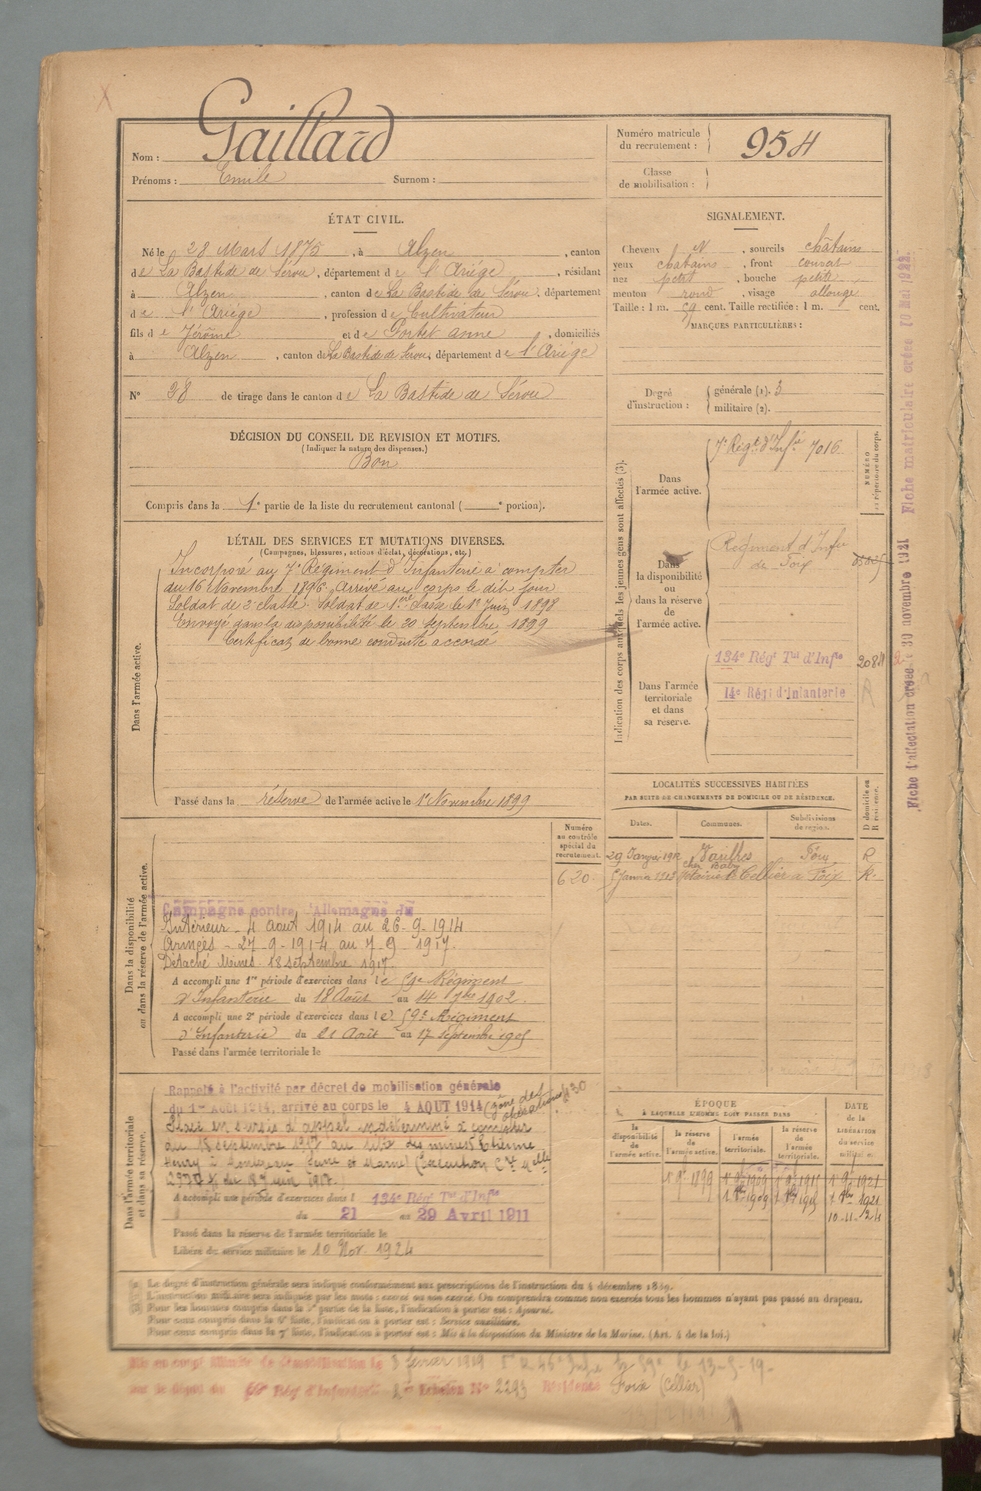 Nom : Gaillard
Prénoms : Emile Surnom :
Numéro matricule du recrutement : 954
Classe de mobilisation :
ÉTAT CIVIL.
Né le 28 Mars 1875, à Alzen, canton
de La Bastide de Sérou, département de l'Ariége, résidant
à Alzen, canton de La Bastide de Sérou, département
de l'Ariége, profession de Cultivateur
fils de Jérôme et de Portet Anne, domiciliés
à Alzen, canton de La Bastide de Sérou, département de l'Ariége
N° 28 de tirage dans le canton de La Bastide de Sérou
SIGNALEMENT.
Cheveux N, sourcils châtains
yeux chatains, front couvert
nez petit, bouche petite
menton rond, visage allongé
Taille : 1 m. 59 cent. Taille rectifiée : 1 m. cent.
MARQUES PARTICULIÈRES :
Degré d'instruction :
générale (1). 3
militaire (2).
DÉCISION DU CONSEIL DE REVISION ET MOTIFS.
(Indiquer la nature des dispenses.)
Bon
Compris dans la 1e partie de la liste du recrutement cantonal ( e portion).
DÉTAIL DES SERVICES ET MUTATIONS DIVERSES.
(Campagnes, blessures, actions d'éclat, décorations, etc.)
Dans l'armée active.
Incorporé au 7e Régiment d'Infanterie à compter
du 16 Novembre 1896. Arrivé au corps le dit jour
Soldat de 2e classe. Soldat de 1ère classe le 1er Juin 1898
Envoyé dans la disponibilité le 20 septembre 1899
Certificat de bonne conduite accordé
Passé dans la réserve de l'armée active le 1er Novembre 1899
Indication des corps auxquels les jeunes gens sont affectés (3).
NUMÉRO au répertoire du corps.
Dans l'armée active.
7e Régt d'Infie 7016
Dans la disponibilité ou dans la réserve de l'armée active.
Régiment d'Infie
de Foix
Dans l'armée territoriale et dans sa réserve.
134e Régt Tal d'Infie 2084
14e Régt d'Infanterie A
Fiche d'affectation créée 30 novembre 1921 Fiche matriculaire créée 10 Mai 1922.
LOCALITÉS SUCCESSIVES HABITÉES
PAR SUITE DE CHANGEMENTS DE DOMICILE OU DE RÉSIDENCE.
Dates. Communes. Subdivisions de région. D domicile ou R résidence.
Foix R
Janvier 1913 Cellier à Foix R
Numéro au contrôle spécial du recrutement.
620
Dans la disponibilité ou dans la réserve de l'armée active.
Campagne contre l'Allemagne du
Intérieur - 4 aout 1914 au 26-9-1914
Armées - 27-9-1914 au 7-9-1917.
Détaché Mines. 18 septembre 1917.
A accompli une 1re période d'exercices dans le 59e Régiment
d'Infanterie du 18 Août au 14 7bre 1902.
A accompli une 2e période d'exercices dans le 59e Régiment
d'Infanterie du 21 Août au 17 septembre 1905
Passé dans l'armée territoriale le
Dans l'armée territoriale et dans sa réserve.
Rappelé à l'activité par décret de mobilisation générale
du 1er AOUT 1914, arrivé au corps le 4 AOUT 1914 (zone des opérations) 630
Placé en sursis d'appel indéterminé à compter
du 18 septembre 1917 au titre des mines Etienne
A accompli une période d'exercices dans l 134e Régt Tal d'Infie
du 21 au 29 Avril 1911
Passé dans la réserve de l'armée territoriale le
Libéré du service militaire le 10 Nov. 1924
ÉPOQUE
À LAQUELLE L'HOMME DOIT PASSER DANS
la disponibilité de l'armée active. la réserve de l'armée active. l'armée territoriale. la réserve de l'armée territoriale.
DATE de la LIBÉRATION du service militaire.
1er 9bre 1899 1er 9bre 1909 1er 9bre 1915 1er 9bre 1921
10-11-24
Le degré d'instruction générale sera indiqué conformément aux prescriptions de l'instruction du 4 décembre 1889.
L'instruction militaire sera indiquée par les mots : exercé ou non exercé. On comprendra comme non exercés tous les hommes n'ayant pas passé au drapeau.
Pour les hommes compris dans la 5e partie de la liste, l'indication à porter est : Ajourné.
Pour ceux compris dans la 6e liste, l'indication à porter est : Service auxiliaire.
Pour ceux compris dans la 7e liste, l'indication à porter est : Mis à la disposition du Ministre de la Marine. (Art. 4 de la loi.)
Mis en congé illimité de démobilisation le 3 fevrier 1919
au dépôt du Rég d'Infanterie Echelon N° 2293 Résidence Foix (Cellier)